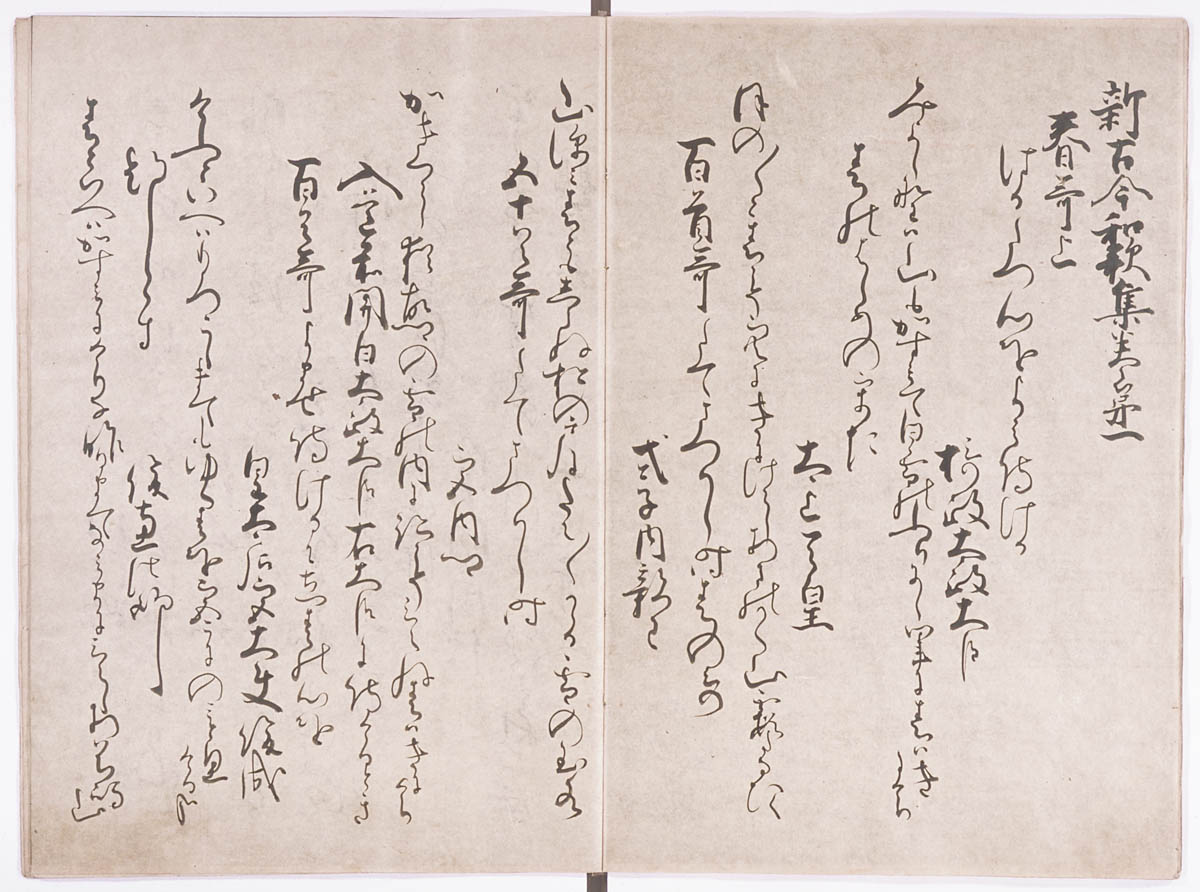 新古今和歌集巻第一
春哥上
はるたつ心をよみ侍ける
摂政太政大臣
みよし野は山もかすみて白雪のふりにし里に春はきにけり
春のはしめのうた
太上天皇
ほの〱と春こそ空にきにけらしあまのかく山霞たなひく
百首哥たてまつりし時春のうた
式子内親王
山深み春ともしらぬ松の戸にたえ〱かかる雪の玉水
五十首哥たてまつりし時
宮内卿
かきくらし猶故郷の雪の内に跡こそみえね春はきにけり
入道前関白太政大臣右大臣に侍けるとき
百首哥よませ侍けるに立春の心を
皇太后宮大夫俊成
けふといへはもろこしまてもゆく春を都にのみと思けるかな
題しらす
俊恵法師
春といへはかすみにけりな昨日まて浪まにみえしあはち嶋山